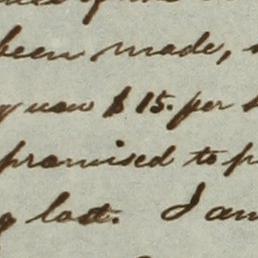 been made,
now $15. per
promised to p
g last. I am